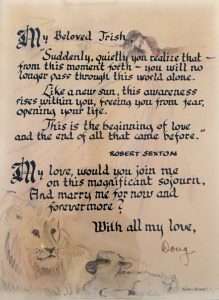 My Beloved Irish,
"Suddenly, quietly you realize that -
from this moment forth - you will no
longer pass through this world alone.
Like a new sun, this awareness
rises within you, freeing you from fear,
opening your life.
This is the beginning of love
and the end of all that came before."
ROBERT SEXTON
My love, would you join me
on this magnificent sojourn,
And marry me for now and
forevermore?
With all my love,
Doug